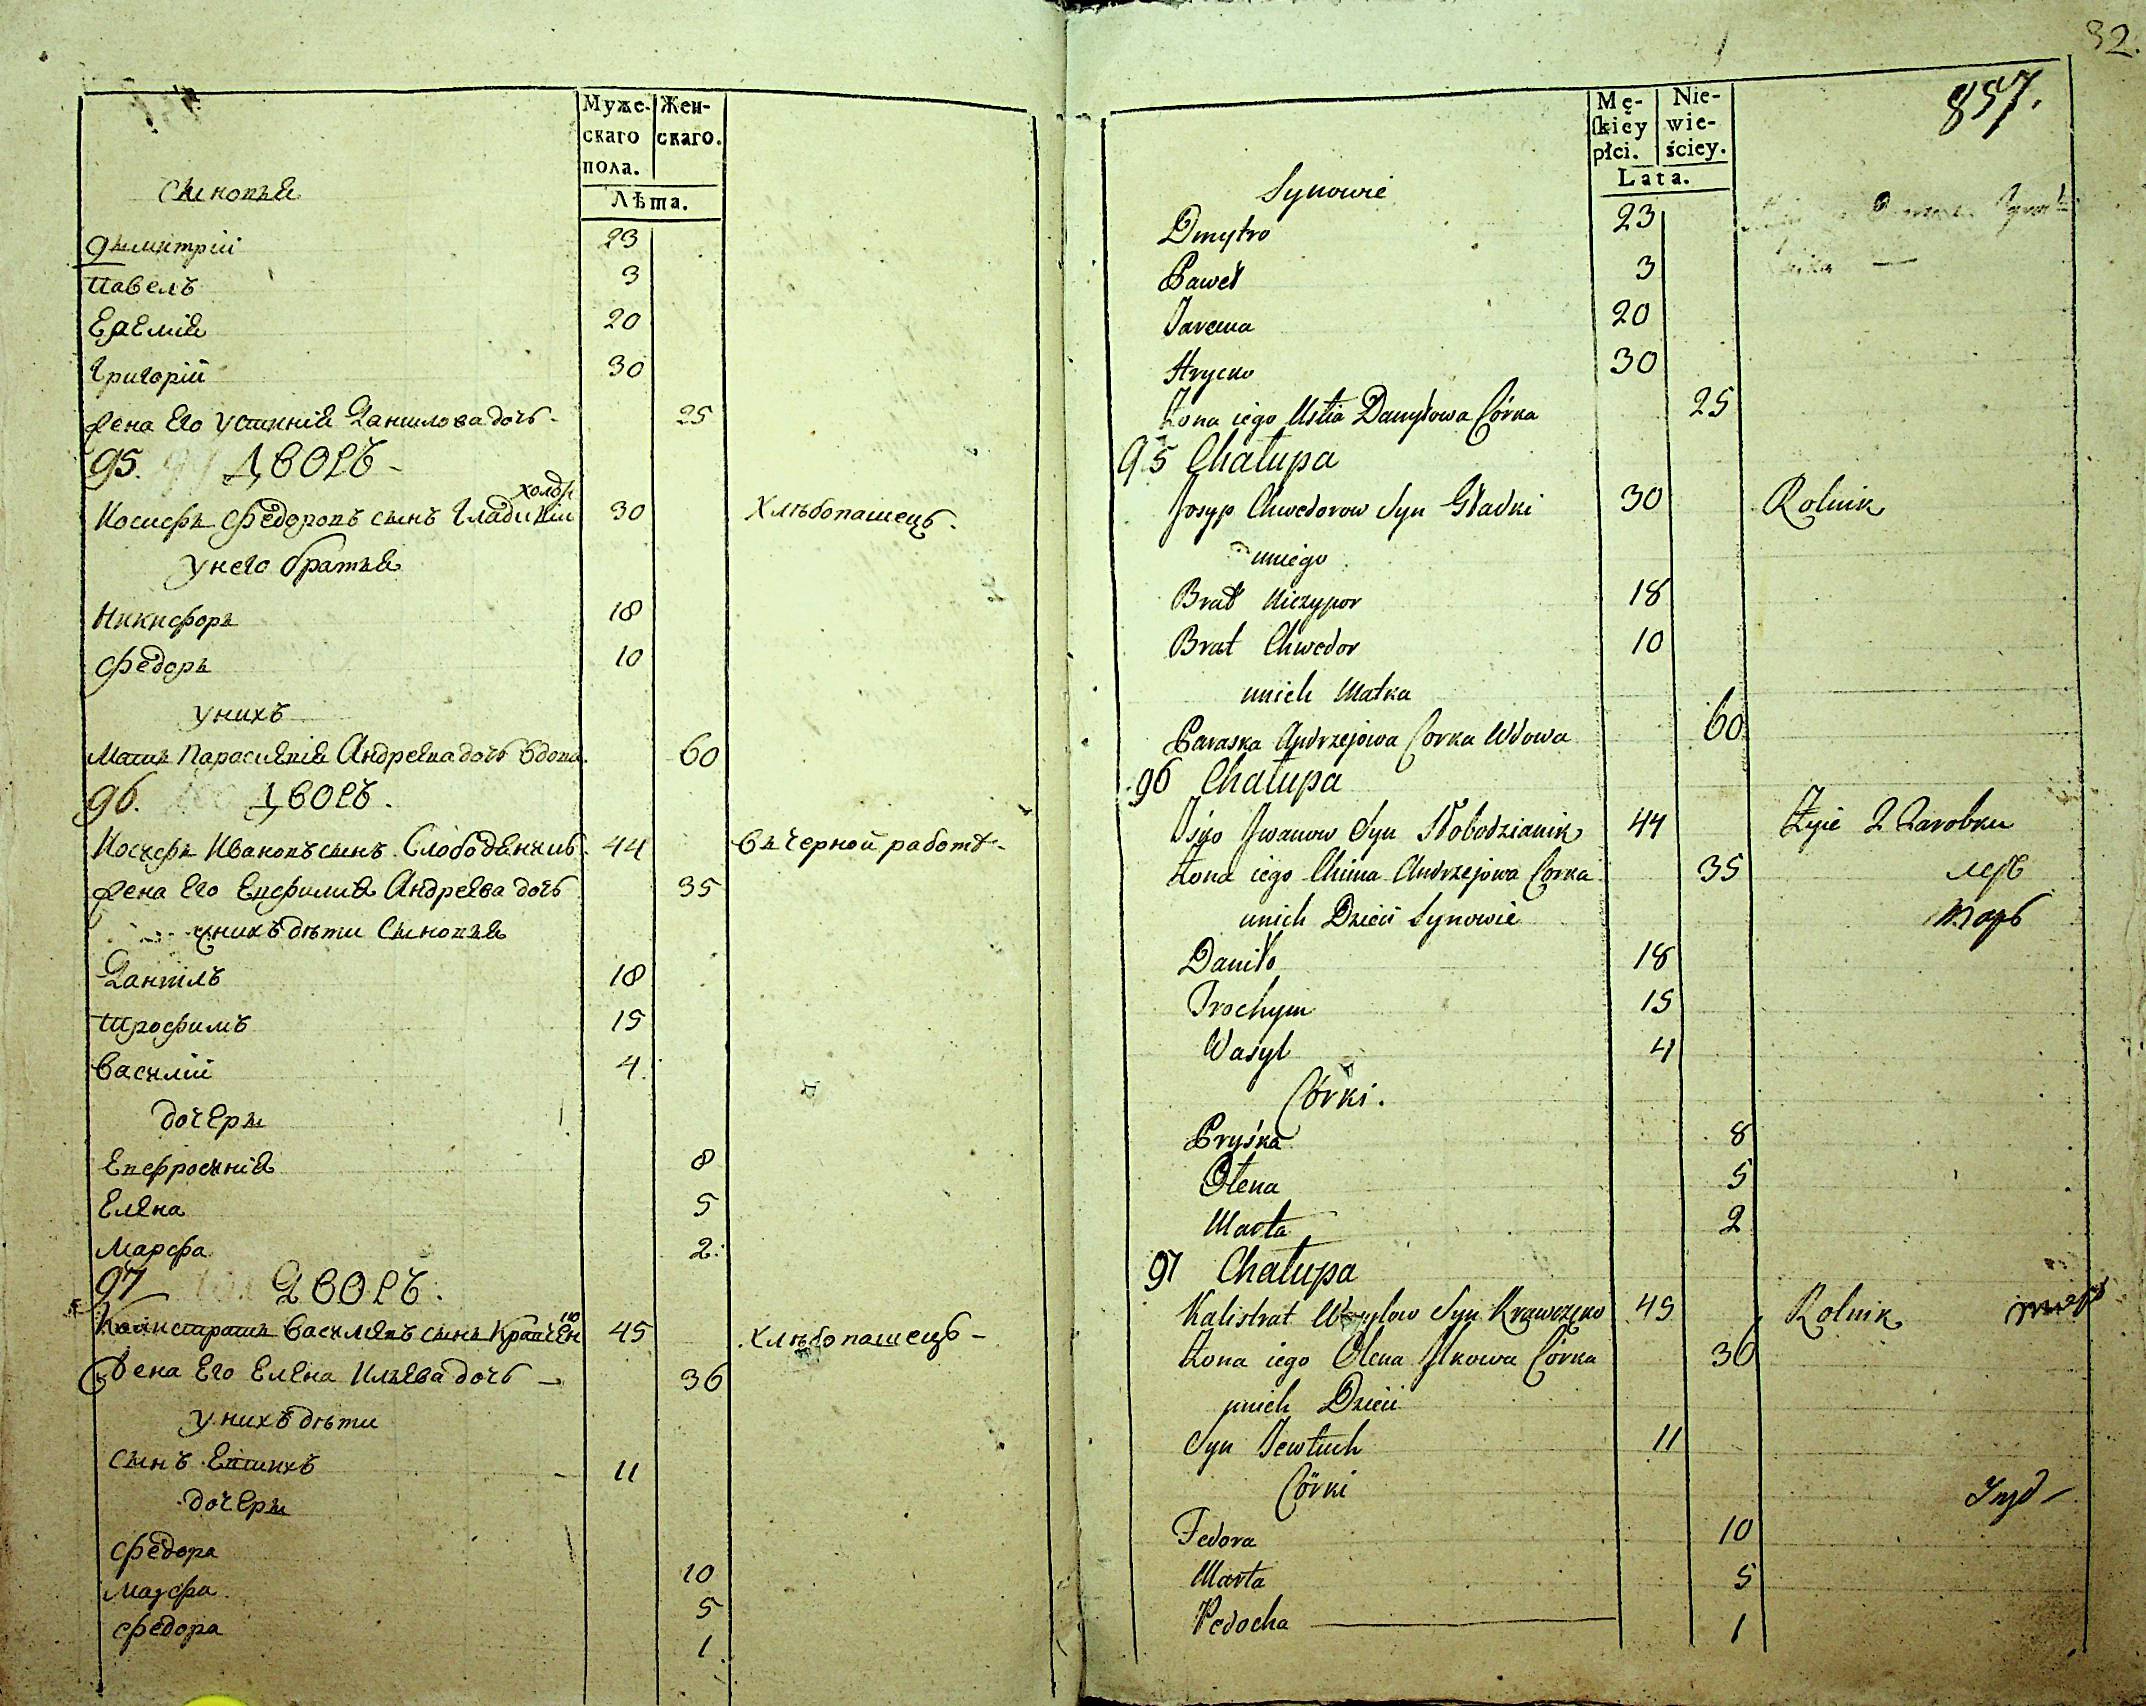 Муже-
скаго
пола.
Жен-
скаго.
Лѣта.
Сынопья
Димитрiй 23
Павелъ 3
Еремiя 20
Григорiй 30
Жена Его Устинiя Данилова дочь 25
95. Дворъ
холо
Иосифъ Федоровъ сынъ Гладикiи 30 Хлѣбопашецъ.
у него братья
Никифоръ 18
Федоръ 10
у нихъ
Мать Парасикпiя Андреева дочь вдова. 60
96. Дворъ.
Иосифъ Ивановъ сынъ Слободяникъ 44 въ черной работѣ
Жена Его Евфимия Андреева дочь 35
у нихъ дѣти Сыновья
Данiилъ 18
Трофимъ 15
Василiй 4.
дочеры
Евфросинiя 8
Елена 5
Марфа 2.
97 Дворъ.
Калистратъ Васильевъ сынъ Кравчен
ко 45 Хлѣбопашецъ
Жена Его Елена Ильева дочь 36
у нихъ дѣти
сынъ Евтихъ 11
дочеры
Федора 10
Марфа 5
Федора 1
32.
857.
Mę-
ſkiey
płci.
Nie-
wie-
ściey.
Lata.
Synowie
Dmytro 23
Paweł 3
Jarema 20
Hrycko 30
Żona iego Ustia Danyłowa Córka 25
95 Chałupa
Josyp Chwedorow Syn Gładki 30 Rolnik
u niego
Brat Niczypor 18
Brat Chwedor 10
u nich Matka
Paraska Andrzejowa Corka Wdowa 60
96 Chałupa
Iśko Iwanow Syn Słobodzianik 44 Żyie z Zarobku
Żona iego Chima Andrzejowa Corka 35
u nich Dzieci Synowie
Daniło 18
Trochym 15
Wasyl 4
Córki.
Pryśka 8
Ołena 5
Marta 2
97 Chałupa
Kalistrat Wasylow Syn Krawczęko 45 Rolnik
Żona iego Olena Ilkowa Córka 36
u nich Dzieci
Syn Jewtuch 11
Córki
Fedora 10
Marta 5
Fedocha 1